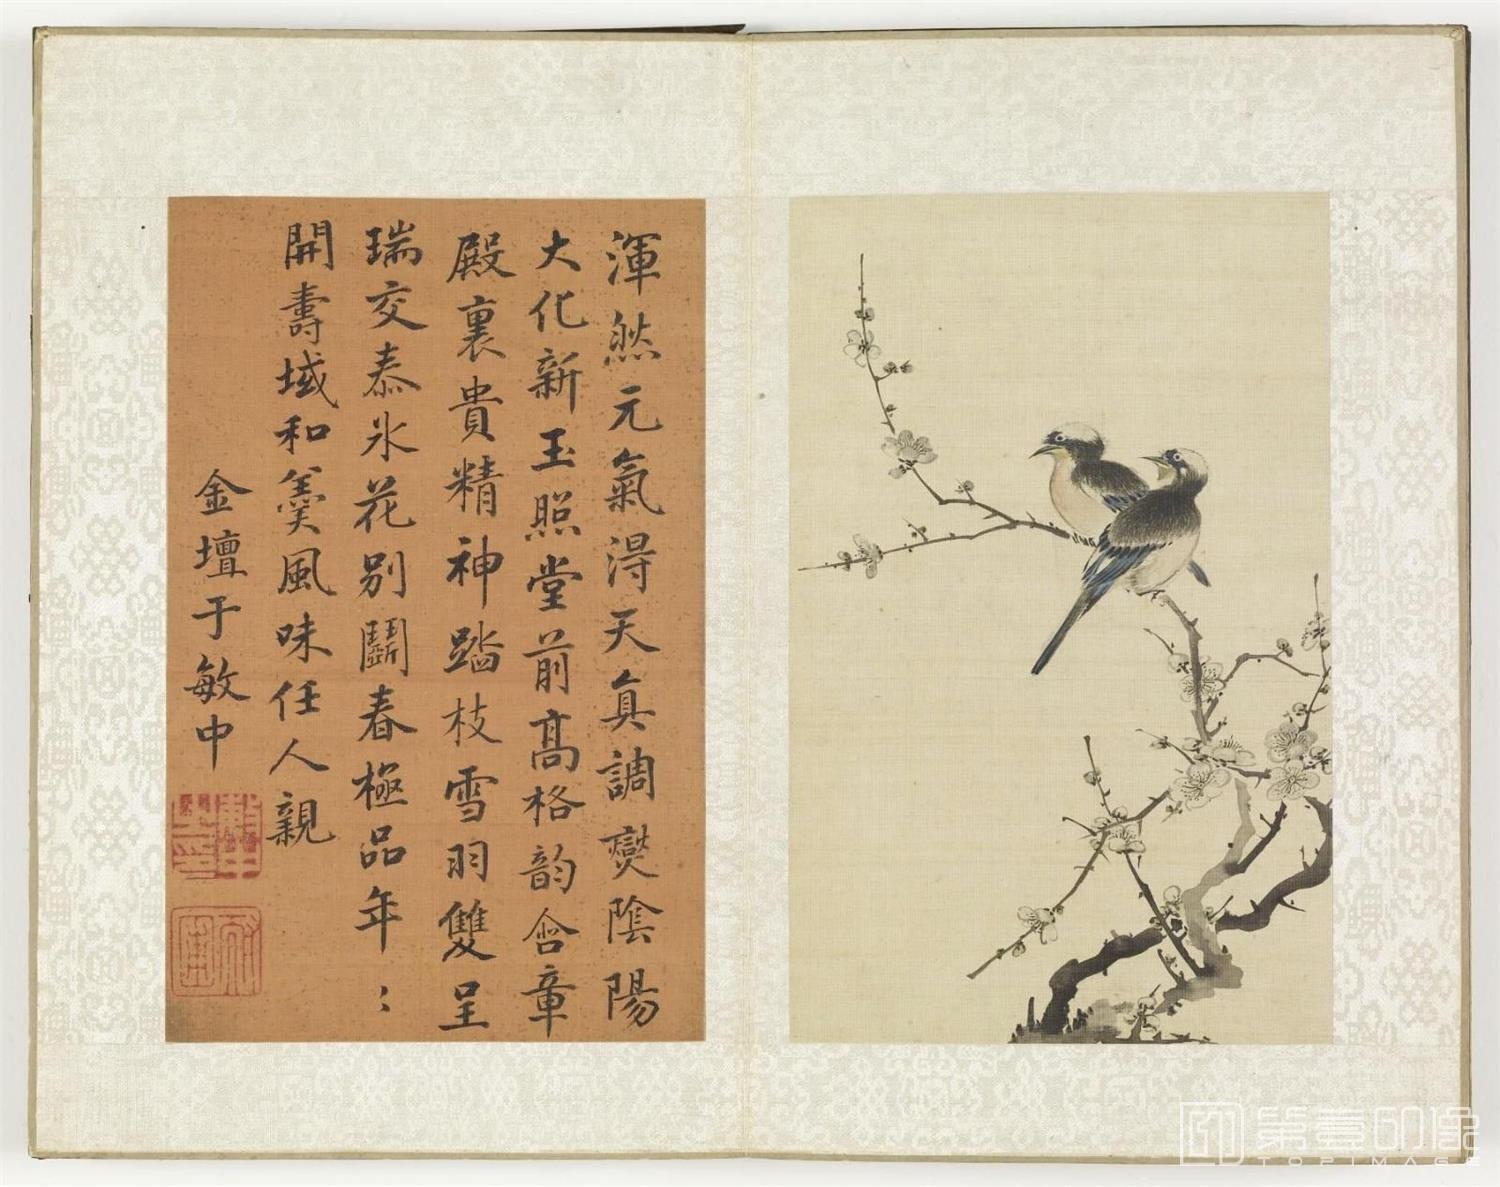 渾然元氣得天真調爕陰陽
大化新玉照堂前髙格韵含章
殿裏貴精神踏枝雪羽雙呈
瑞交泰氷花别鬭春極品年〻
開壽域和羮風味任人親
金壇于敏中
第壹印像
TOPIMAGE